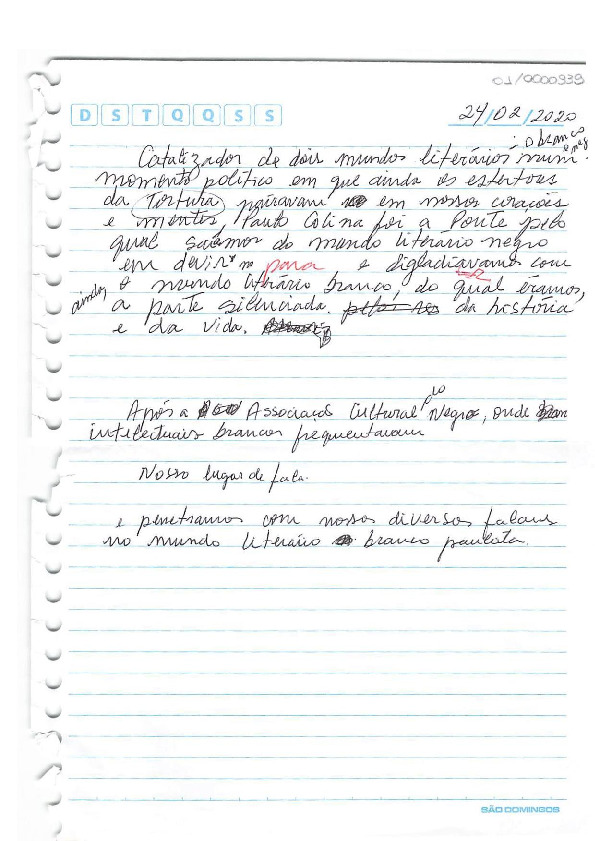 01/0000939
D S T Q Q S S
24/02/2020
: o branco
e neg
Catalizador de dois mundos literários num
momento político em que ainda os estertores
da Tortura pairavam em nossos corações
e mentes, Paulo Colina foi a Ponte pelo
qual saímos do mundo literário negro
em devir no para e digladiávamos com
ainda, o mundo literário branco, do qual éramos,
a parte silenciada. da história
e da vida.
Após a Associação Cultural do Negro, onde
intelectuais brancos frequentavam
Nosso lugar de fala.
e penetramos com nossos diversos falares
no mundo literário branco paulista.
SÃO DOMINGOS